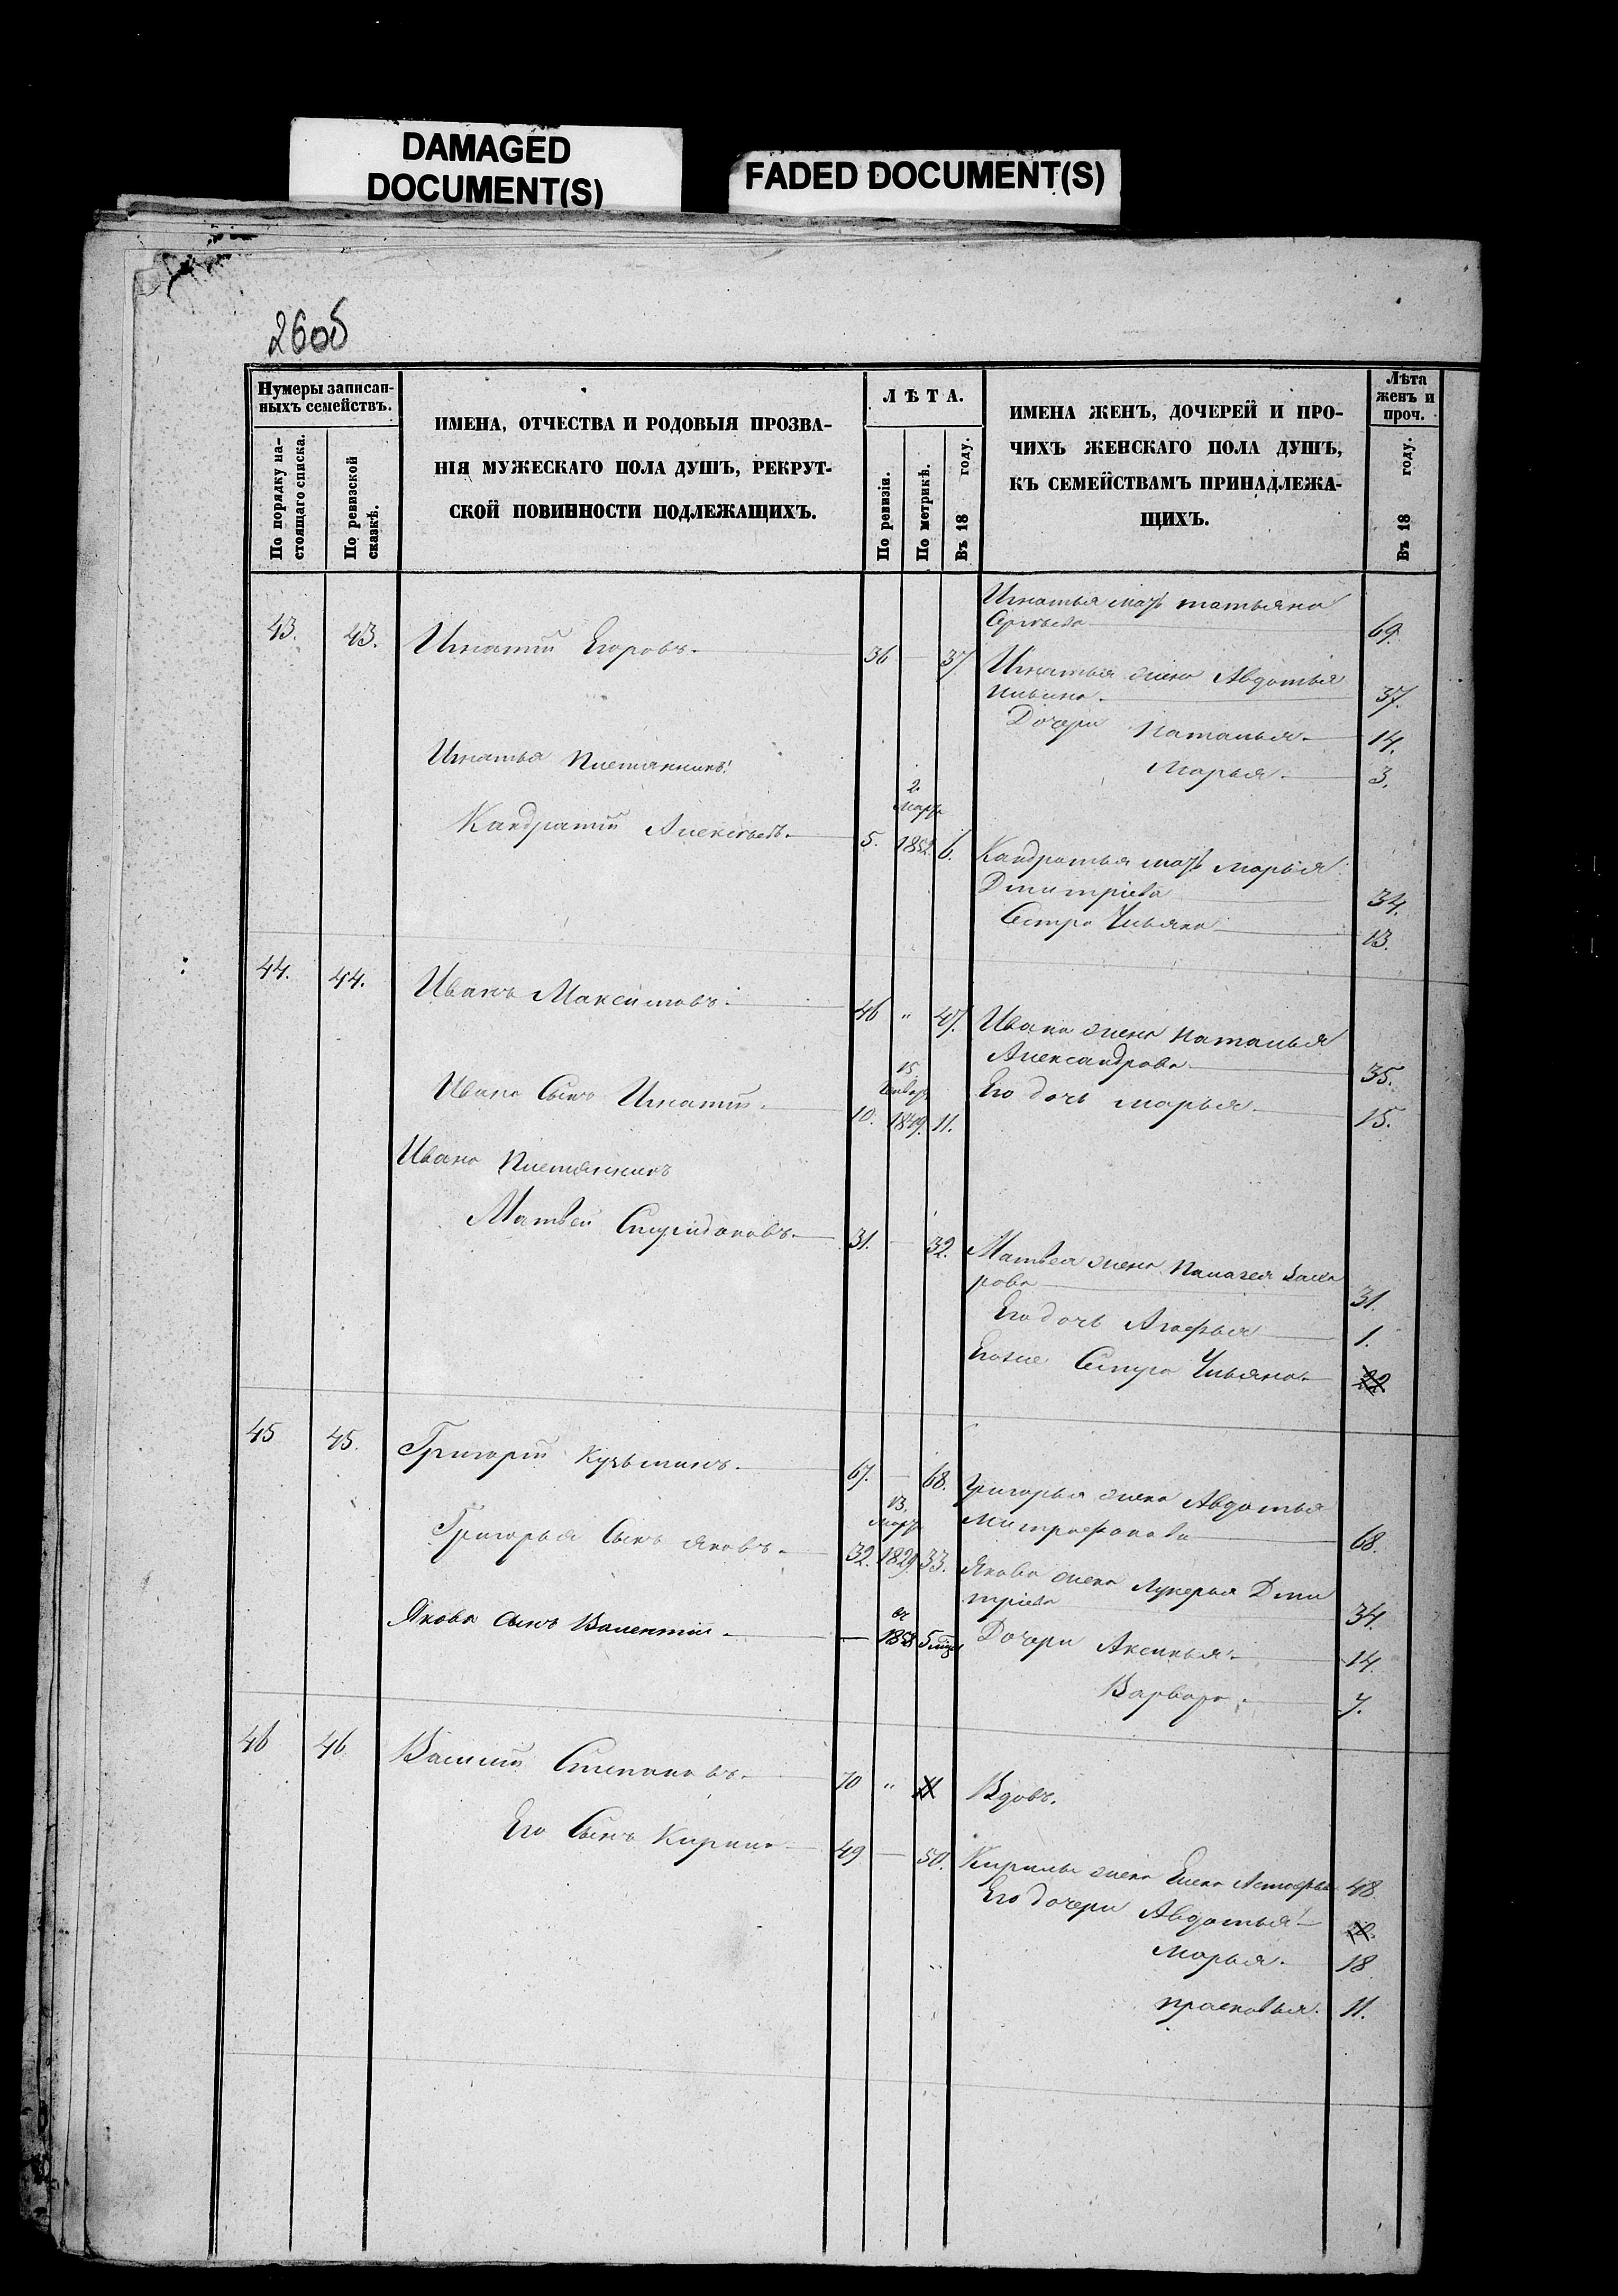 DAMAGED
DOCUMENT(S)
FADED DOCUMENT(S)
260б
Нумеры записан-
ныхъ семействъ.
По порядку на-
стоящаго списка.
По ревизской
сказкѣ.
ИМЕНА, ОТЧЕСТВА И РОДОВЫЯ ПРОЗВА-
НІЯ МУЖЕСКАГО ПОЛА ДУШЪ, РЕКРУТ-
СКОЙ ПОВИННОСТИ ПОДЛЕЖАЩИХЪ.
ЛѢТА.
По ревизіи.
По метрикѣ.
Въ 18 году.
ИМЕНА ЖЕНЪ, ДОЧЕРЕЙ И ПРО-
ЧИХЪ ЖЕНСКАГО ПОЛА ДУШЪ,
КЪ СЕМЕЙСТВАМЪ ПРИНАДЛЕЖА-
ЩИХЪ.
Лѣта
женъ и
проч.
Въ 18 году.
Игнатья мать татьяна
69.
43. 43. Игнатій Егоровъ. 36 — 37.
Игнатья жена Авдотья
37.
Дочери Наталья. 14.
Марья. 3.
Игнатья Племянникъ
2.
Мар.
Кандратій Алексѣевъ. 5. 1852. 6.
Кандратья мать марья
Дмитріева 34.
Сестра Ульяна 13.
44. 44. Иванъ Максимовъ. 46 „ 47.
Ивана жена наталья
Александрова 35.
15
Январ.
Ивана Сынъ Игнатій. 10. 1849. 11.
Его дочь марья. 15.
Ивана Племянникъ
Матвей Спиридоновъ. 31. — 32.
Матвея жена Палагея Заха
рова 31.
Его дочь Агафья 1.
Егоже Сестра Ульяна. 22
45 45. Григорій Кузьминъ. 67. — 68.
Григорья жена Авдотья
Митрофанова 68.
13.
Мар.
Григорья Сынъ Яковъ. 32. 1829. 33.
Якова жена Лукерья Дми
тріева 34.
въ
Якова сынъ Валентій. — 1858 5 мѣс.
Дочери Аксинья. 14.
Варвара. 7.
46 46 Василій Степановъ. 70 „ 71
Вдовъ.
Его Сынъ Кирила 49 — 50.
Кирилы жена Елена 48
Его дочери Авдотья
Марья. 18
прасковья. 11.